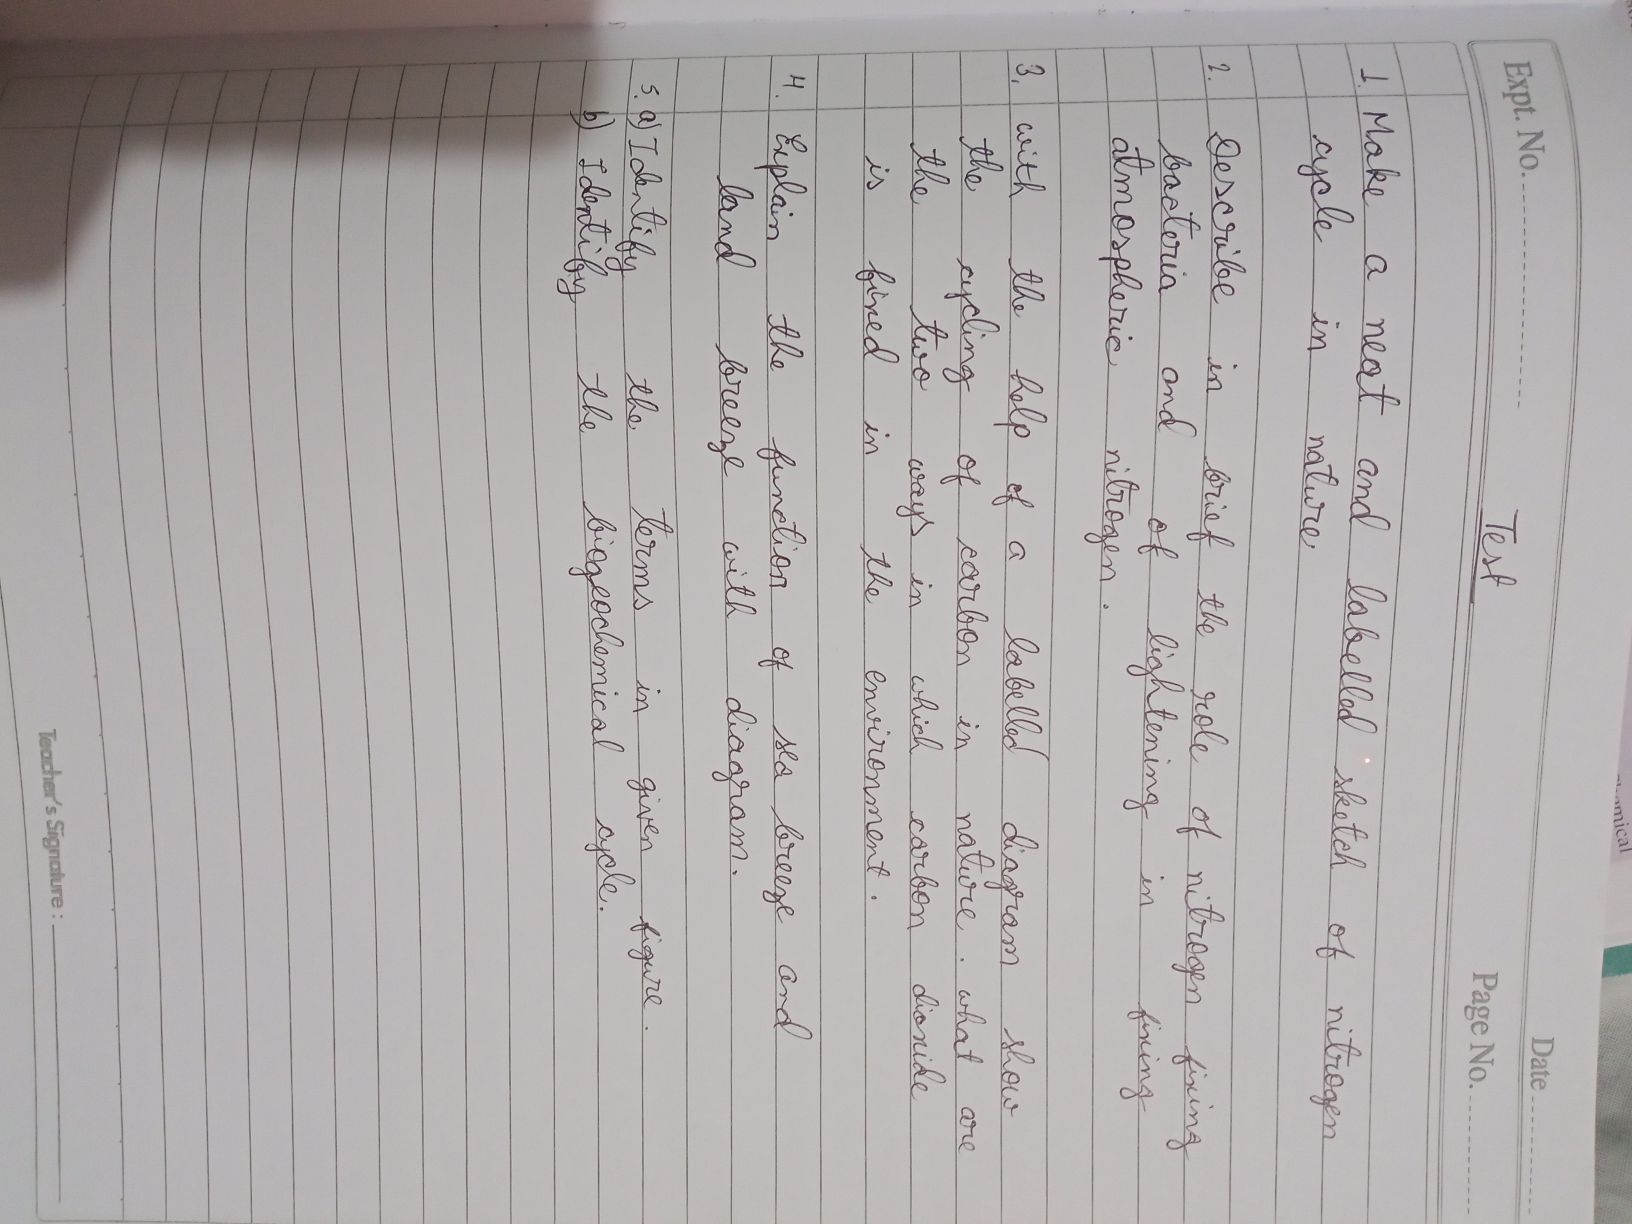 Expt. No.
Date
Test
Page No.
1. Make a neat and labelled sketch of nitrogen
cycle in nature.
2. Describe in brief the role of nitrogen fixing
bacteria and of lightening in fixing
atmospheric nitrogen.
3. with the help of a labelled diagram show
the cycling of carbon in nature. what are
the two ways in which carbon dioxide
is fixed in the environment.
4. Explain the function of sea breeze and
land breeze with diagram.
5. a) Identify the terms in given figure.
b) Identify the biogeochemical cycle.
Teacher's Signature :